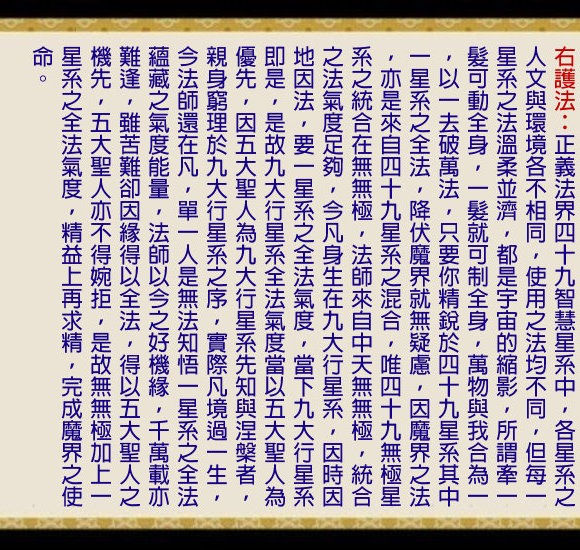 右護法：正義法界四十九智慧星系中，各星系之
人文與環境各不相同，使用之法均不同，但每一
星系之法溫柔並濟，都是宇宙的縮影，所謂牽一
髮可動全身，一髮就可制全身，萬物與我合為一
，以一去破萬法，只要你精銳於四十九星系其中
一星系之全法，降伏魔界就無疑慮，因魔界之法
，亦是來自四十九星系之混合，唯四十九無極星
系之統合在無無極，法師來自中天無無極，統合
之法氣度足夠，今凡身生在九大行星系，因時因
地因法，要一星系之全法氣度，當下九大行星系
即是，是故九大行星系全法氣度當以五大聖人為
優先，因五大聖人為九大行星系先知與涅槃者，
親身窮理於九大行星系之序，實際凡境過一生，
今法師還在凡，單一人是無法知悟一星系之全法
蘊藏之氣度能量，法師以今之好機緣，千萬載亦
難逢，雖苦難卻因緣得以全法，得以五大聖人之
機先，五大聖人亦不得婉拒，是故無無極加上一
星系之全法氣度，精益上再求精，完成魔界之使
命。